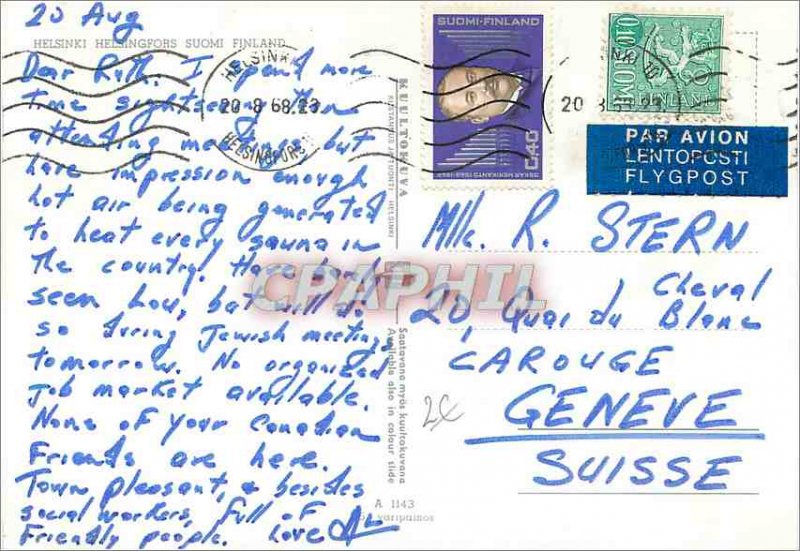 20 Aug
HELSINKI HELSINGFORS SUOMI FINLAND
Dear Ruth. I spend more
time sightseeing than
attending meetings, but
have impression enough
hot air being generated
to heat every sauna in
the country. Have barely
seen Lou, but will do
so during Jewish meetings
tomorrow. No organized
job market available.
None of your Canadian
Friends are here.
Town pleasant, & besides
social workers, full of
Friendly people. Love
HELSINKI
20.8.68.23
HELSINGFORS
KUULTOKUVA
KUSTANNUS HELSINKI
Saatavana myös kuultokuvana
Available also in colour slide
A 1143
SUOMI-FINLAND
OSKAR MERIKANTO 1868-1924
0,40
0,10
SUOMI
FINLAND
20.8.68.23
PAR AVION
LENTOPOSTI
FLYGPOST
Mlle. R. STERN
20, Quai du Cheval Blanc
CAROUGE
GENEVE
SUISSE
CPAPHIL